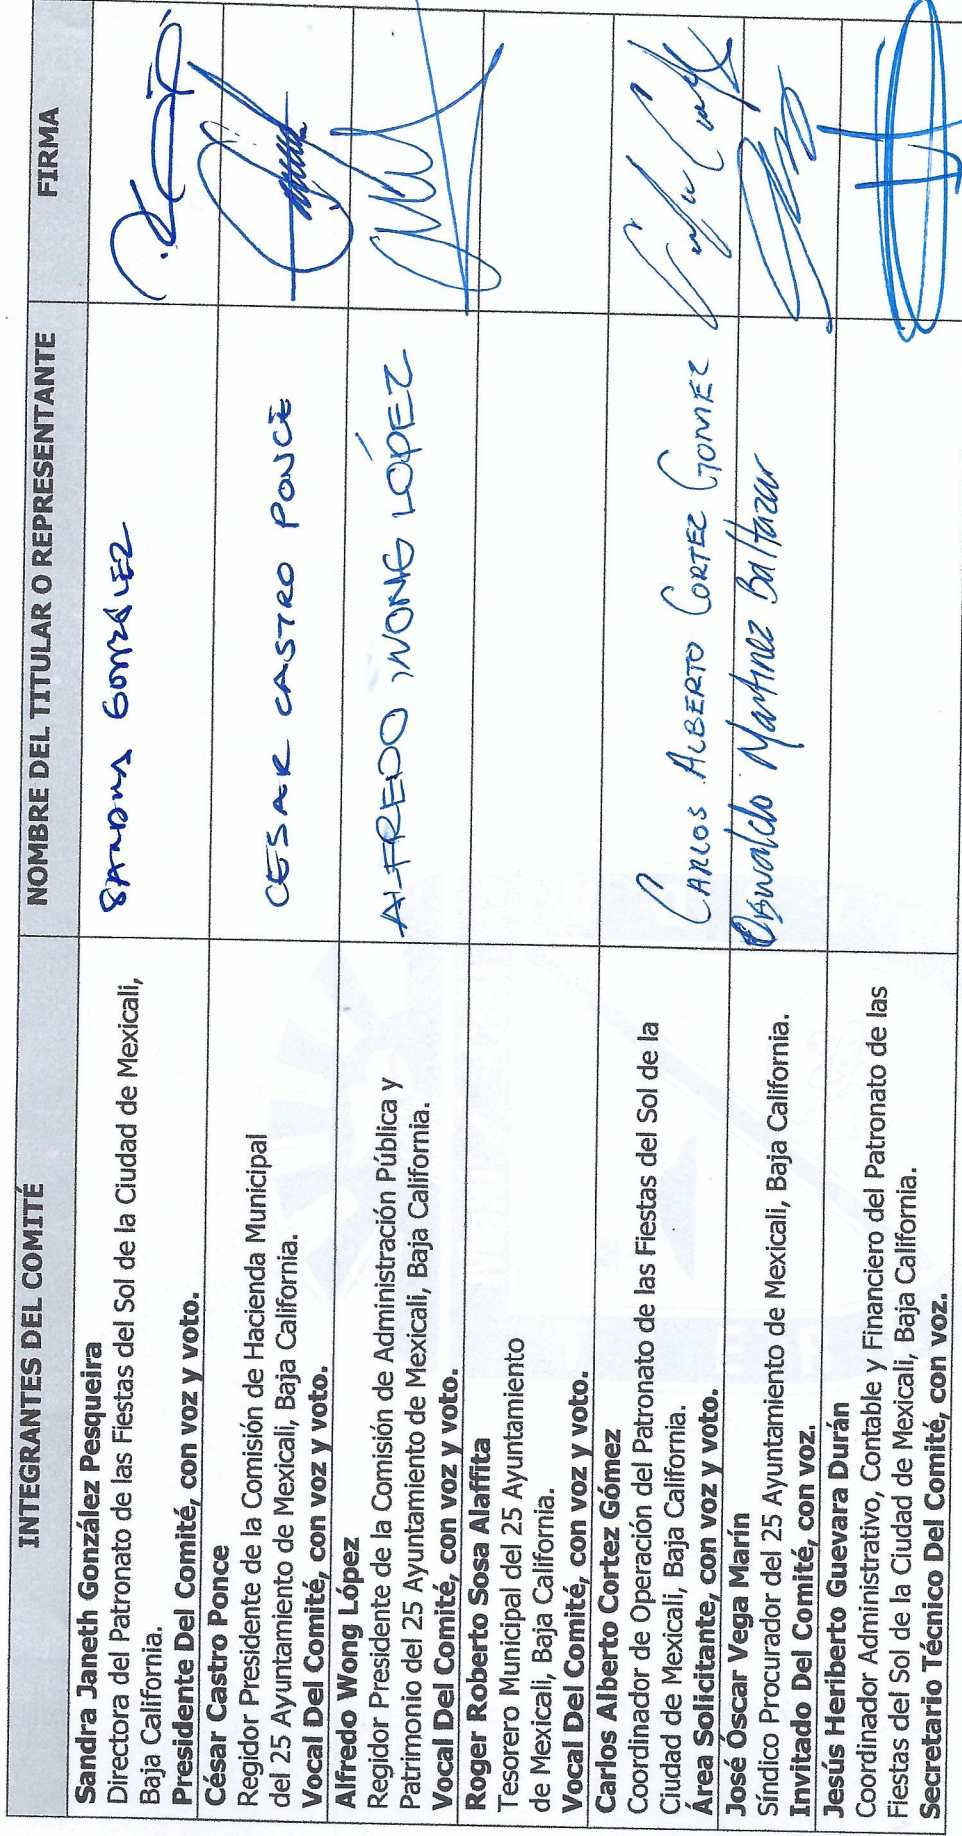 INTEGRANTES DEL COMITÉ
NOMBRE DEL TITULAR O REPRESENTANTE
FIRMA
Sandra Janeth González Pesqueira
Directora del Patronato de las Fiestas del Sol de la Ciudad de Mexicali,
Baja California.
Presidente Del Comité, con voz y voto.
SANDRA GONZÁLEZ
César Castro Ponce
Regidor Presidente de la Comisión de Hacienda Municipal
del 25 Ayuntamiento de Mexicali, Baja California.
Vocal Del Comité, con voz y voto.
CESAR CASTRO PONCE
Alfredo Wong López
Regidor Presidente de la Comisión de Administración Pública y
Patrimonio del 25 Ayuntamiento de Mexicali, Baja California.
Vocal Del Comité, con voz y voto.
ALFREDO WONG LÓPEZ
Roger Roberto Sosa Alaffita
Tesorero Municipal del 25 Ayuntamiento
de Mexicali, Baja California.
Vocal Del Comité, con voz y voto.
Carlos Alberto Cortez Gómez
Coordinador de Operación del Patronato de las Fiestas del Sol de la
Ciudad de Mexicali, Baja California.
Área Solicitante, con voz y voto.
CARLOS ALBERTO CORTEZ GOMEZ
José Óscar Vega Marín
Síndico Procurador del 25 Ayuntamiento de Mexicali, Baja California.
Invitado Del Comité, con voz.
Oswaldo Martinez Baltazar
Jesús Heriberto Guevara Durán
Coordinador Administrativo, Contable y Financiero del Patronato de las
Fiestas del Sol de la Ciudad de Mexicali, Baja California.
Secretario Técnico Del Comité, con voz.